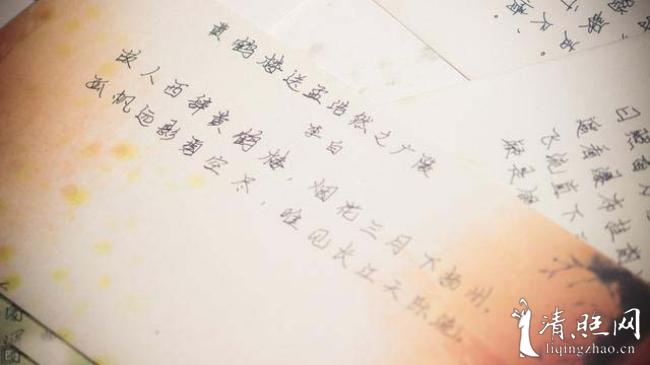 黄鹤楼送孟浩然之广陵
李白
故人西辞黄鹤楼，烟花三月下扬州，
孤帆远影碧空尽，唯见长江天际流。
日照香
遥看瀑布挂前
飞流直下
疑是银
清照网
liqingzhao.cn